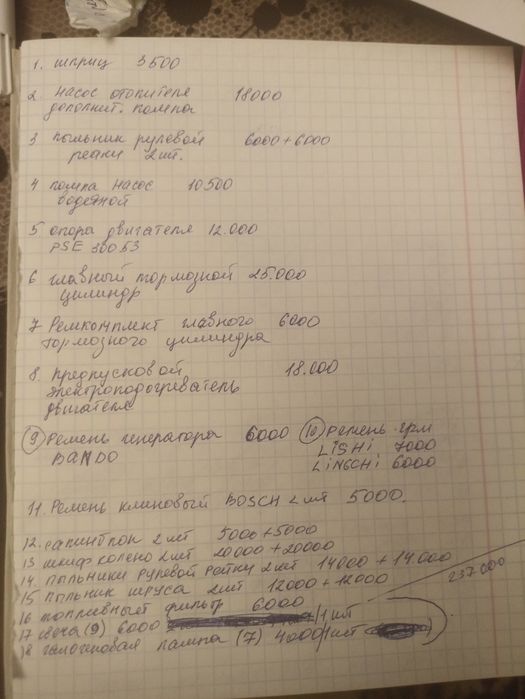 1. шприц 3500
2 насос отопителя 18000
дополнит. помпа
3 пыльник рулевой 6000+6000
рейки 2шт.
4 помпа насос 10500
водяной
5 опора двигателя 12.000
PSE 300.53
6 главный тормозной 25.000
цилиндр
7 Ремкомплект главного 6000
тормозного цилиндра
8. Предпусковой 18.000
электроподогреватель
двигателя
9 Ремень генератора 6000
BANDO
10 Ремень грм
LiSHi 7000
LiNGCHi 6000
11. Ремень клиновый BOSCH 2 шт 5000.
12. салинтпон 2шт 5000+5000
13 шкиф колено 2шт 20000+20000
14. пыльники рулевой рейки 2шт 14000+14000
15 пыльник шруса 2шт 12000+12000
237000
16 топливный фильтр 6000
17 свеча (9) 6000 /1шт
18 галогеновая лампа (7) 4000/1шт